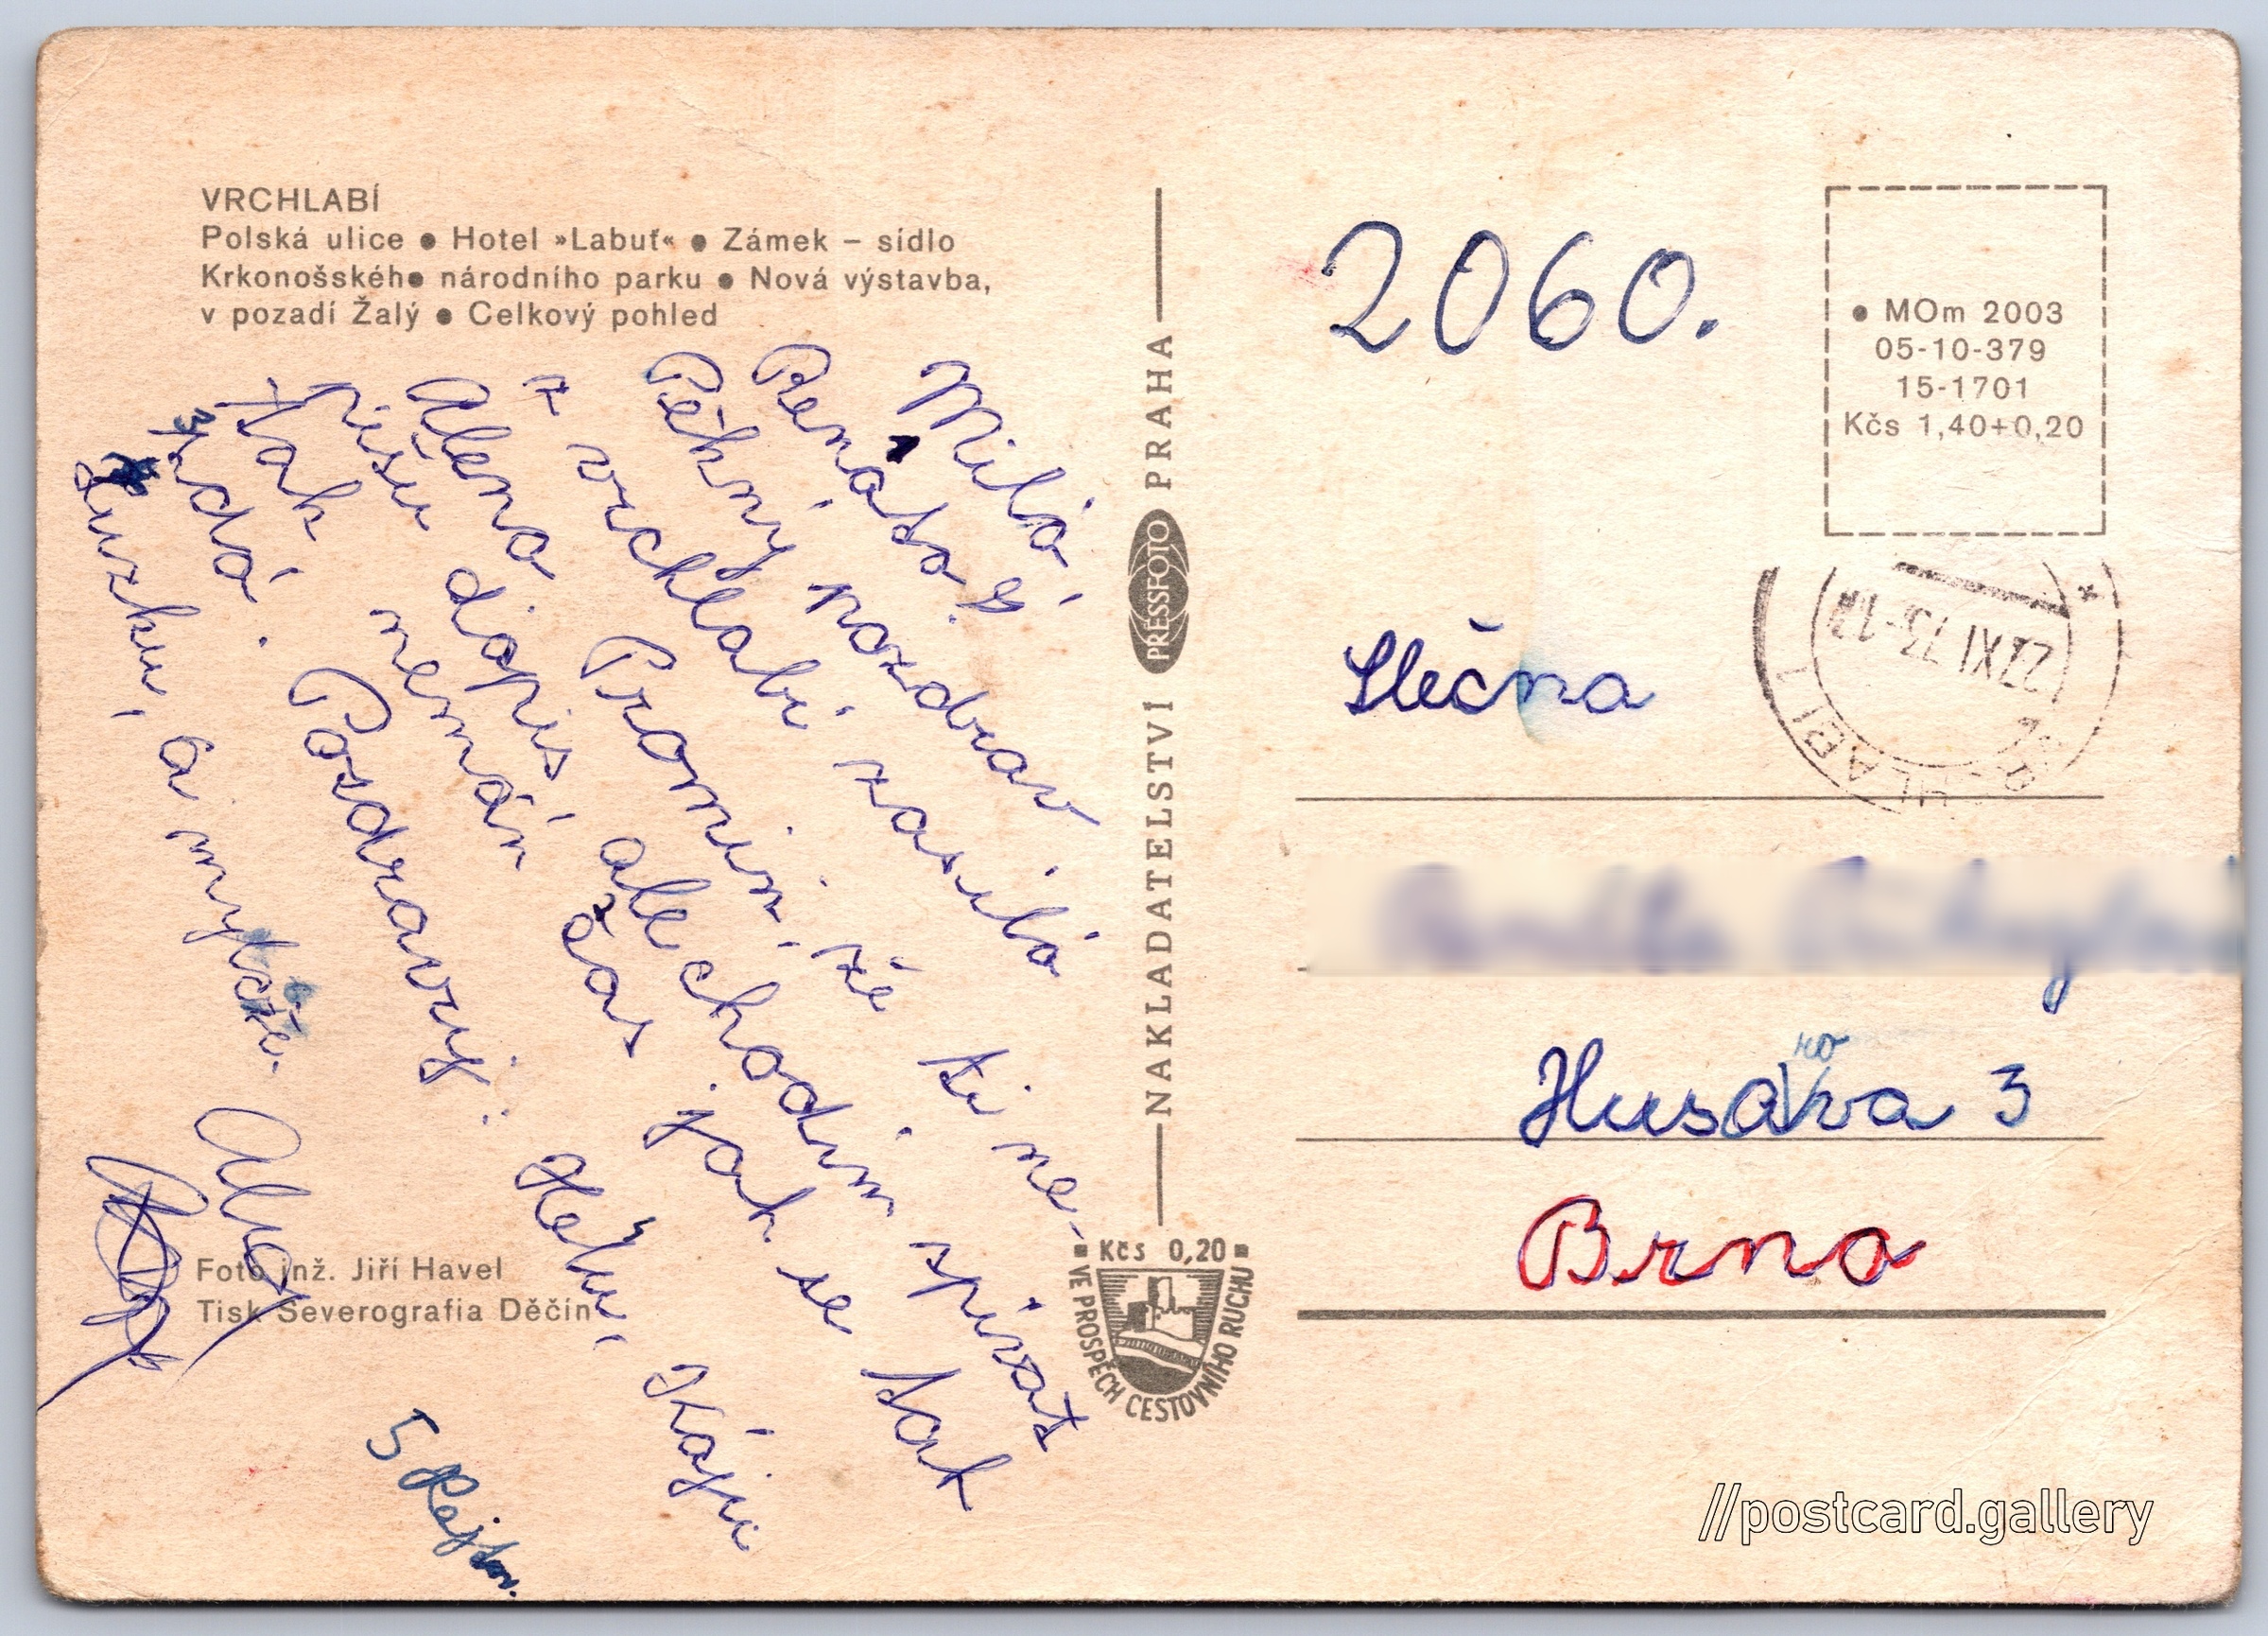 VRCHLABÍ
Polská ulice ● Hotel »Labuť« ● Zámek – sídlo
Krkonošského národního parku ● Nová výstavba,
v pozadí Žalý ● Celkový pohled
Milá,
Renáta
Pěkný pozdrav
z vrchlabí zasílá
Alena Promiň, že ti ne-
píšu dopis, ale chodím zpívat
tak nemán čas jak se tak
zdá. Pozdravuj: Helu, Káju
a
Foto inž. Jiří Havel
Tisk Severografia Děčín
5
NAKLADATELSTVÍ PRESSFOTO PRAHA
Kčs 0,20
VE PROSPĚCH CESTOVNÍHO RUCHU
2060.
● MOm 2003
05-10-379
15-1701
Kčs 1,40+0,20
22.XI.73-12
Slečna
ro
Husova 3
Brno
//postcard.gallery